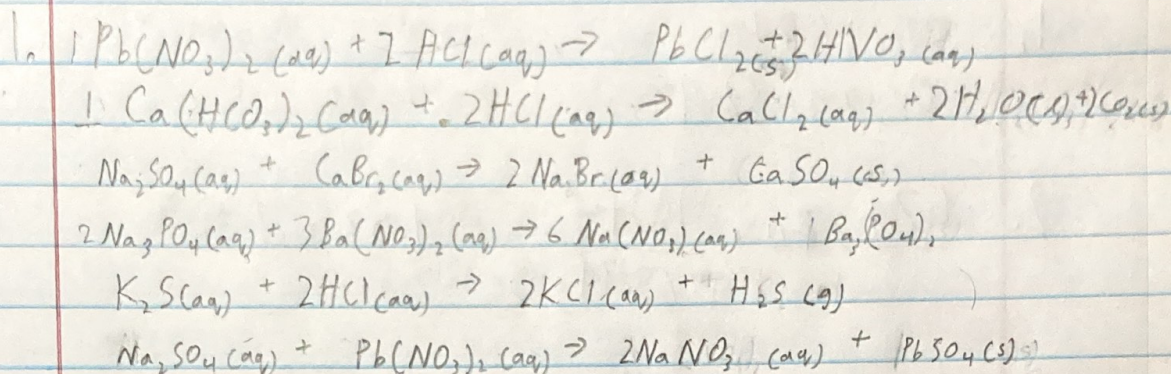 1. 1 Pb(NO3)2 (aq) + 2 HCl (aq) → PbCl2(s) + 2HNO3 (aq)
1 Ca(HCO3)2 (aq) + 2HCl (aq) → CaCl2 (aq) + 2H2O
Na2SO4 (aq) + CaBr2 (aq) → 2 NaBr (aq) + CaSO4 (s)
2 Na3PO4 (aq) + 3 Ba(NO3)2 (aq) → 6 Na(NO3) (aq) + 1 Ba3(PO4)2
K2S (aq) + 2HCl (aq) → 2KCl (aq) + H2S (g)
Na2SO4 (aq) + Pb(NO3)2 (aq) → 2NaNO3 (aq) + PbSO4 (s)